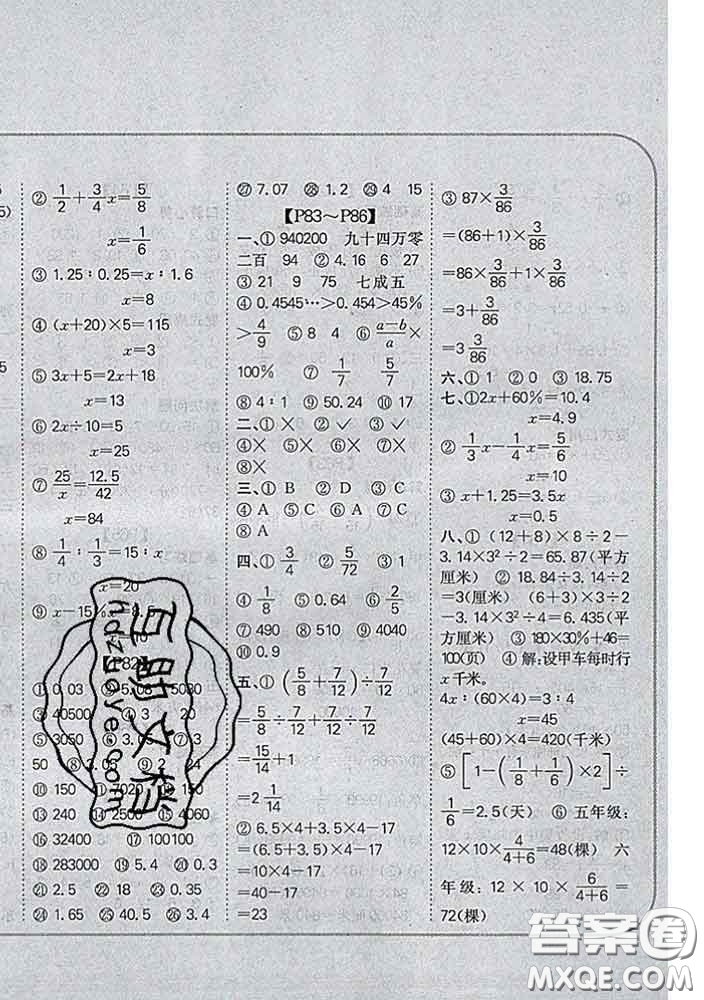 5)
② 1/2+3/4x=5/8
x=1/6
③ 1.25∶0.25=x∶1.6
x=8
④ (x+20)×5=115
x=3
⑤ 3x+5=2x+18
x=13
⑥ 2x÷10=5
x=25
⑦ 25/x=12.5/42
x=84
⑧ 1/4∶1/3=15∶x
x=20
⑨ x-15%x=8.5
① 0.03 ② 5.08 5080
③ 40500 ④ 3 20
⑤ 3050 ⑥ 3.05 ⑦ 3
50 ⑧ 2.05 ⑨ 2 24
⑩ 150 ⑪ 7020 ⑫ 150
⑬ 240 ⑭ 2500 ⑮ 4060
⑯ 32400 ⑰ 100100
⑱ 283000 ⑲ 5.4 ⑳ 0.3
㉑ 2.5 ㉒ 18 ㉓ 0.35
㉔ 1.65 ㉕ 40.5 ㉖ 3.6
㉗ 7.07 ㉘ 1.2 ㉙ 4 15
【P83～P86】
一、① 940200 九十四万零
二百 94 ② 4.16 6 27
③ 21 9 75 七成五
④ 0.4545…>0.454>45%
>4/9 ⑤ 8 4 ⑥ (a-b)/a×
100% ⑦ 1/7 5/7
⑧ 4∶1 ⑨ 50.24 ⑩ 17
二、①× ② ✓ ③ ✓
④× ⑤× ⑥× ⑦×
⑧×
三、① B ② D ③ C
④ A ⑤ C ⑥ A ⑦ C
⑧ A
四、① 3/4 ② 5/72 ③ 1
④ 1/8 ⑤ 0.64 ⑥ 2/5
⑦ 490 ⑧ 510 ⑨ 4040
⑩ 0.9
五、① (5/8+7/12)÷7/12
=5/8÷7/12+7/12÷7/12
=15/14+1
=2 1/14
② 6.5×4+3.5×4-17
=(6.5+3.5)×4-17
=10×4-17
=40-17
=23
③ 87×3/86
=(86+1)×3/86
=86×3/86+1×3/86
=3+3/86
=3 3/86
六、① 1 ② 0 ③ 18.75
七、①2x+60%=10.4
x=4.9
② 1/3x-1/4x=5/6
x=10
③ x+1.25=3.5x
x=0.5
八、① (12+8)×8÷2-
3.14×3²÷2=65.87(平方
厘米) ② 18.84÷3.14÷2
=3(厘米) (6+6)×3÷2
-3.14×3²÷4=6.435(平方
厘米) ③ 180×30%+46=
100(页) ④ 解:设甲车每时行
x千米。
4x∶(60×4)=3∶4
x=45
(45+60)×4=420(千米)
⑤ [1-(1/8+1/6)×2]÷
1/6=2.5(天) ⑥ 五年级:
12×10×4/(4+6)=48(棵) 六
年级: 12×10×6/(4+6)=
72(棵)
互助文档
hdzuoye.com
答案圈
MXQE.COM